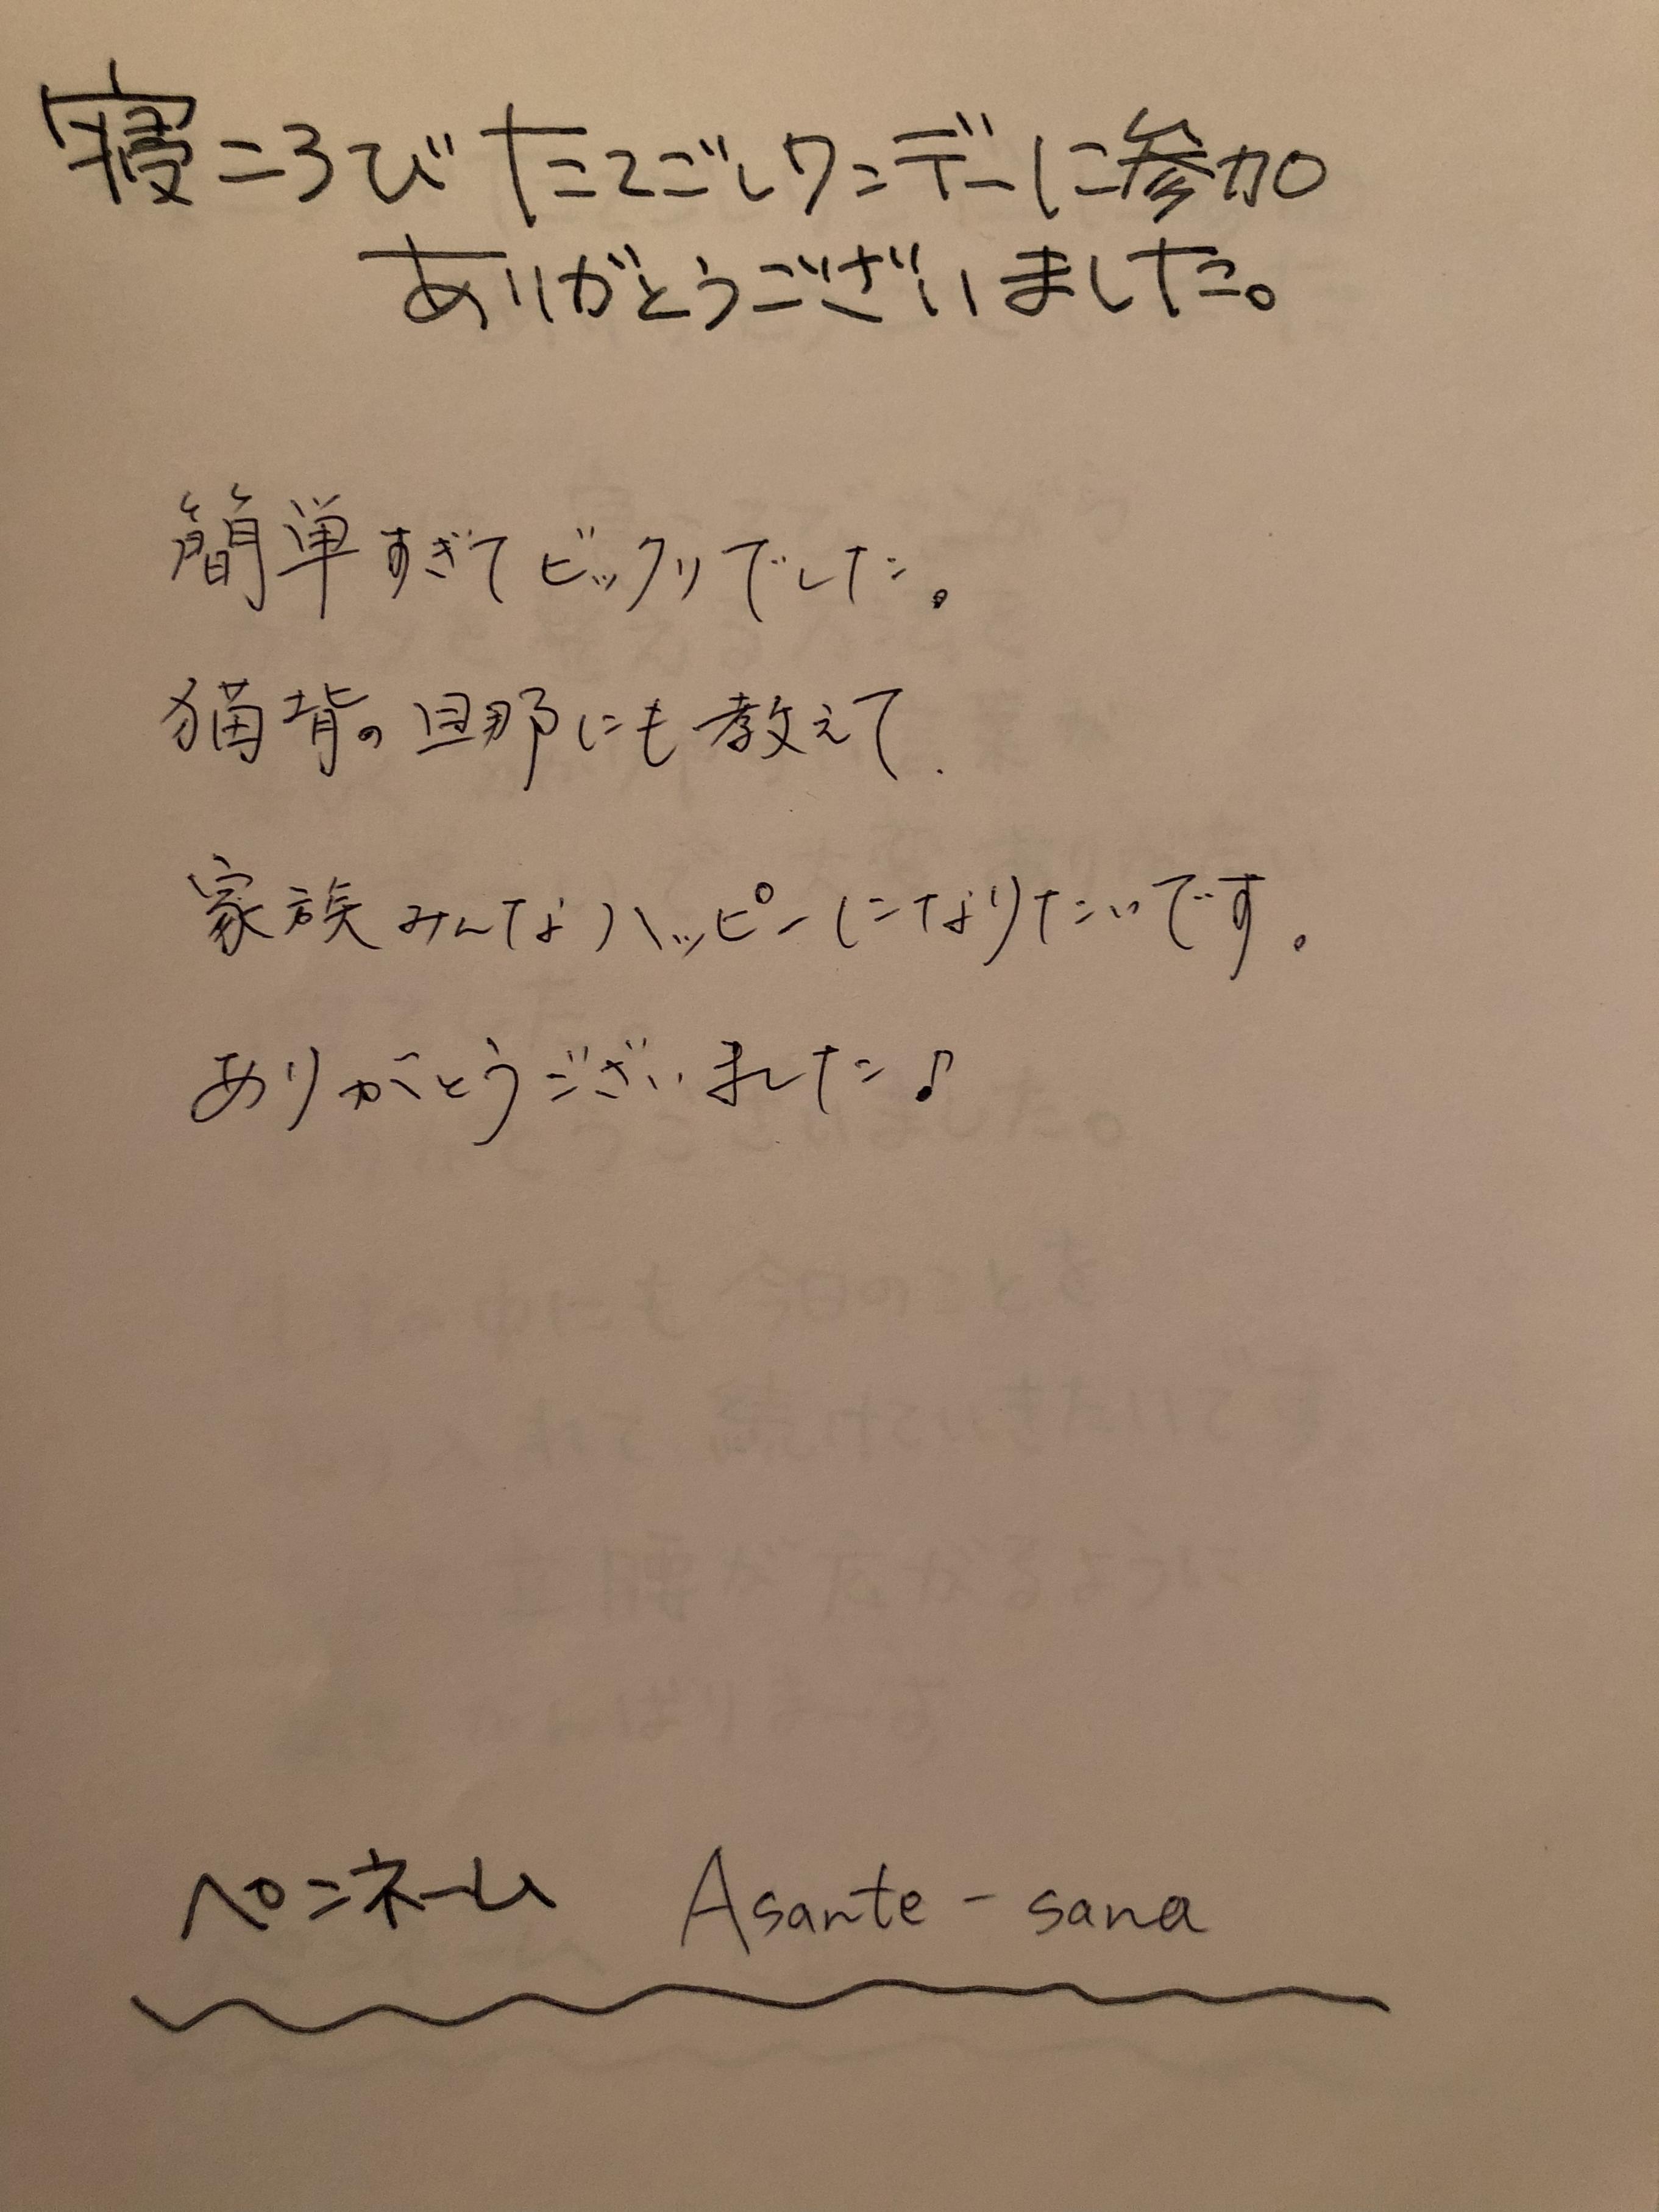 寝ころびたてごしワンデーに参加
ありがとうございました。
簡単すぎてビックリでした。
猫背の旦那にも教えて
家族みんなハッピーになりたいです。
ありがとうございました♪
ペンネーム Asante-sana